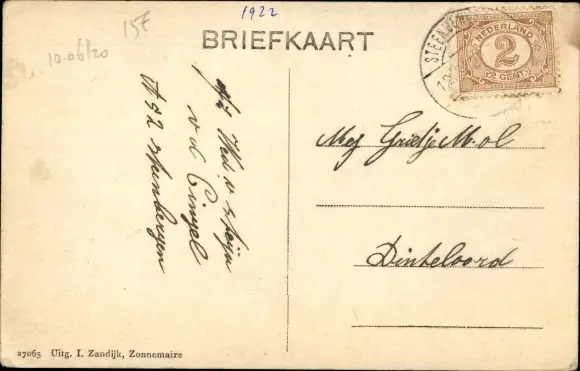 1922
15F
10.06/20
BRIEFKAART
STEENB
NEDERLAND
2
2 CENT
Afz Wed. v. d. Heijn
v d Cingel
A 92 Steenbergen
Mej Grietje Mol
Dinteloord
27065 Uitg. I. Zandijk, Zonnemaire